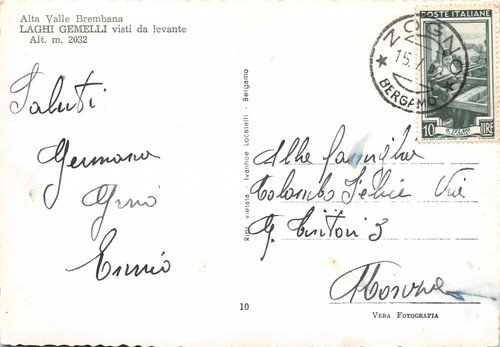 Alta Valle Brembana
LAGHI GEMELLI visti da levante
Alt. m. 2032
Saluti
Germana
Ennio
Ripr. vietata Ivantice Locatelli - Bergamo
ZOGNO
BERGAMO
POSTE ITALIANE
10 LIRE
Alla famiglia
Colombo Felice Via
G.
3
10
VERA FOTOGRAFIA